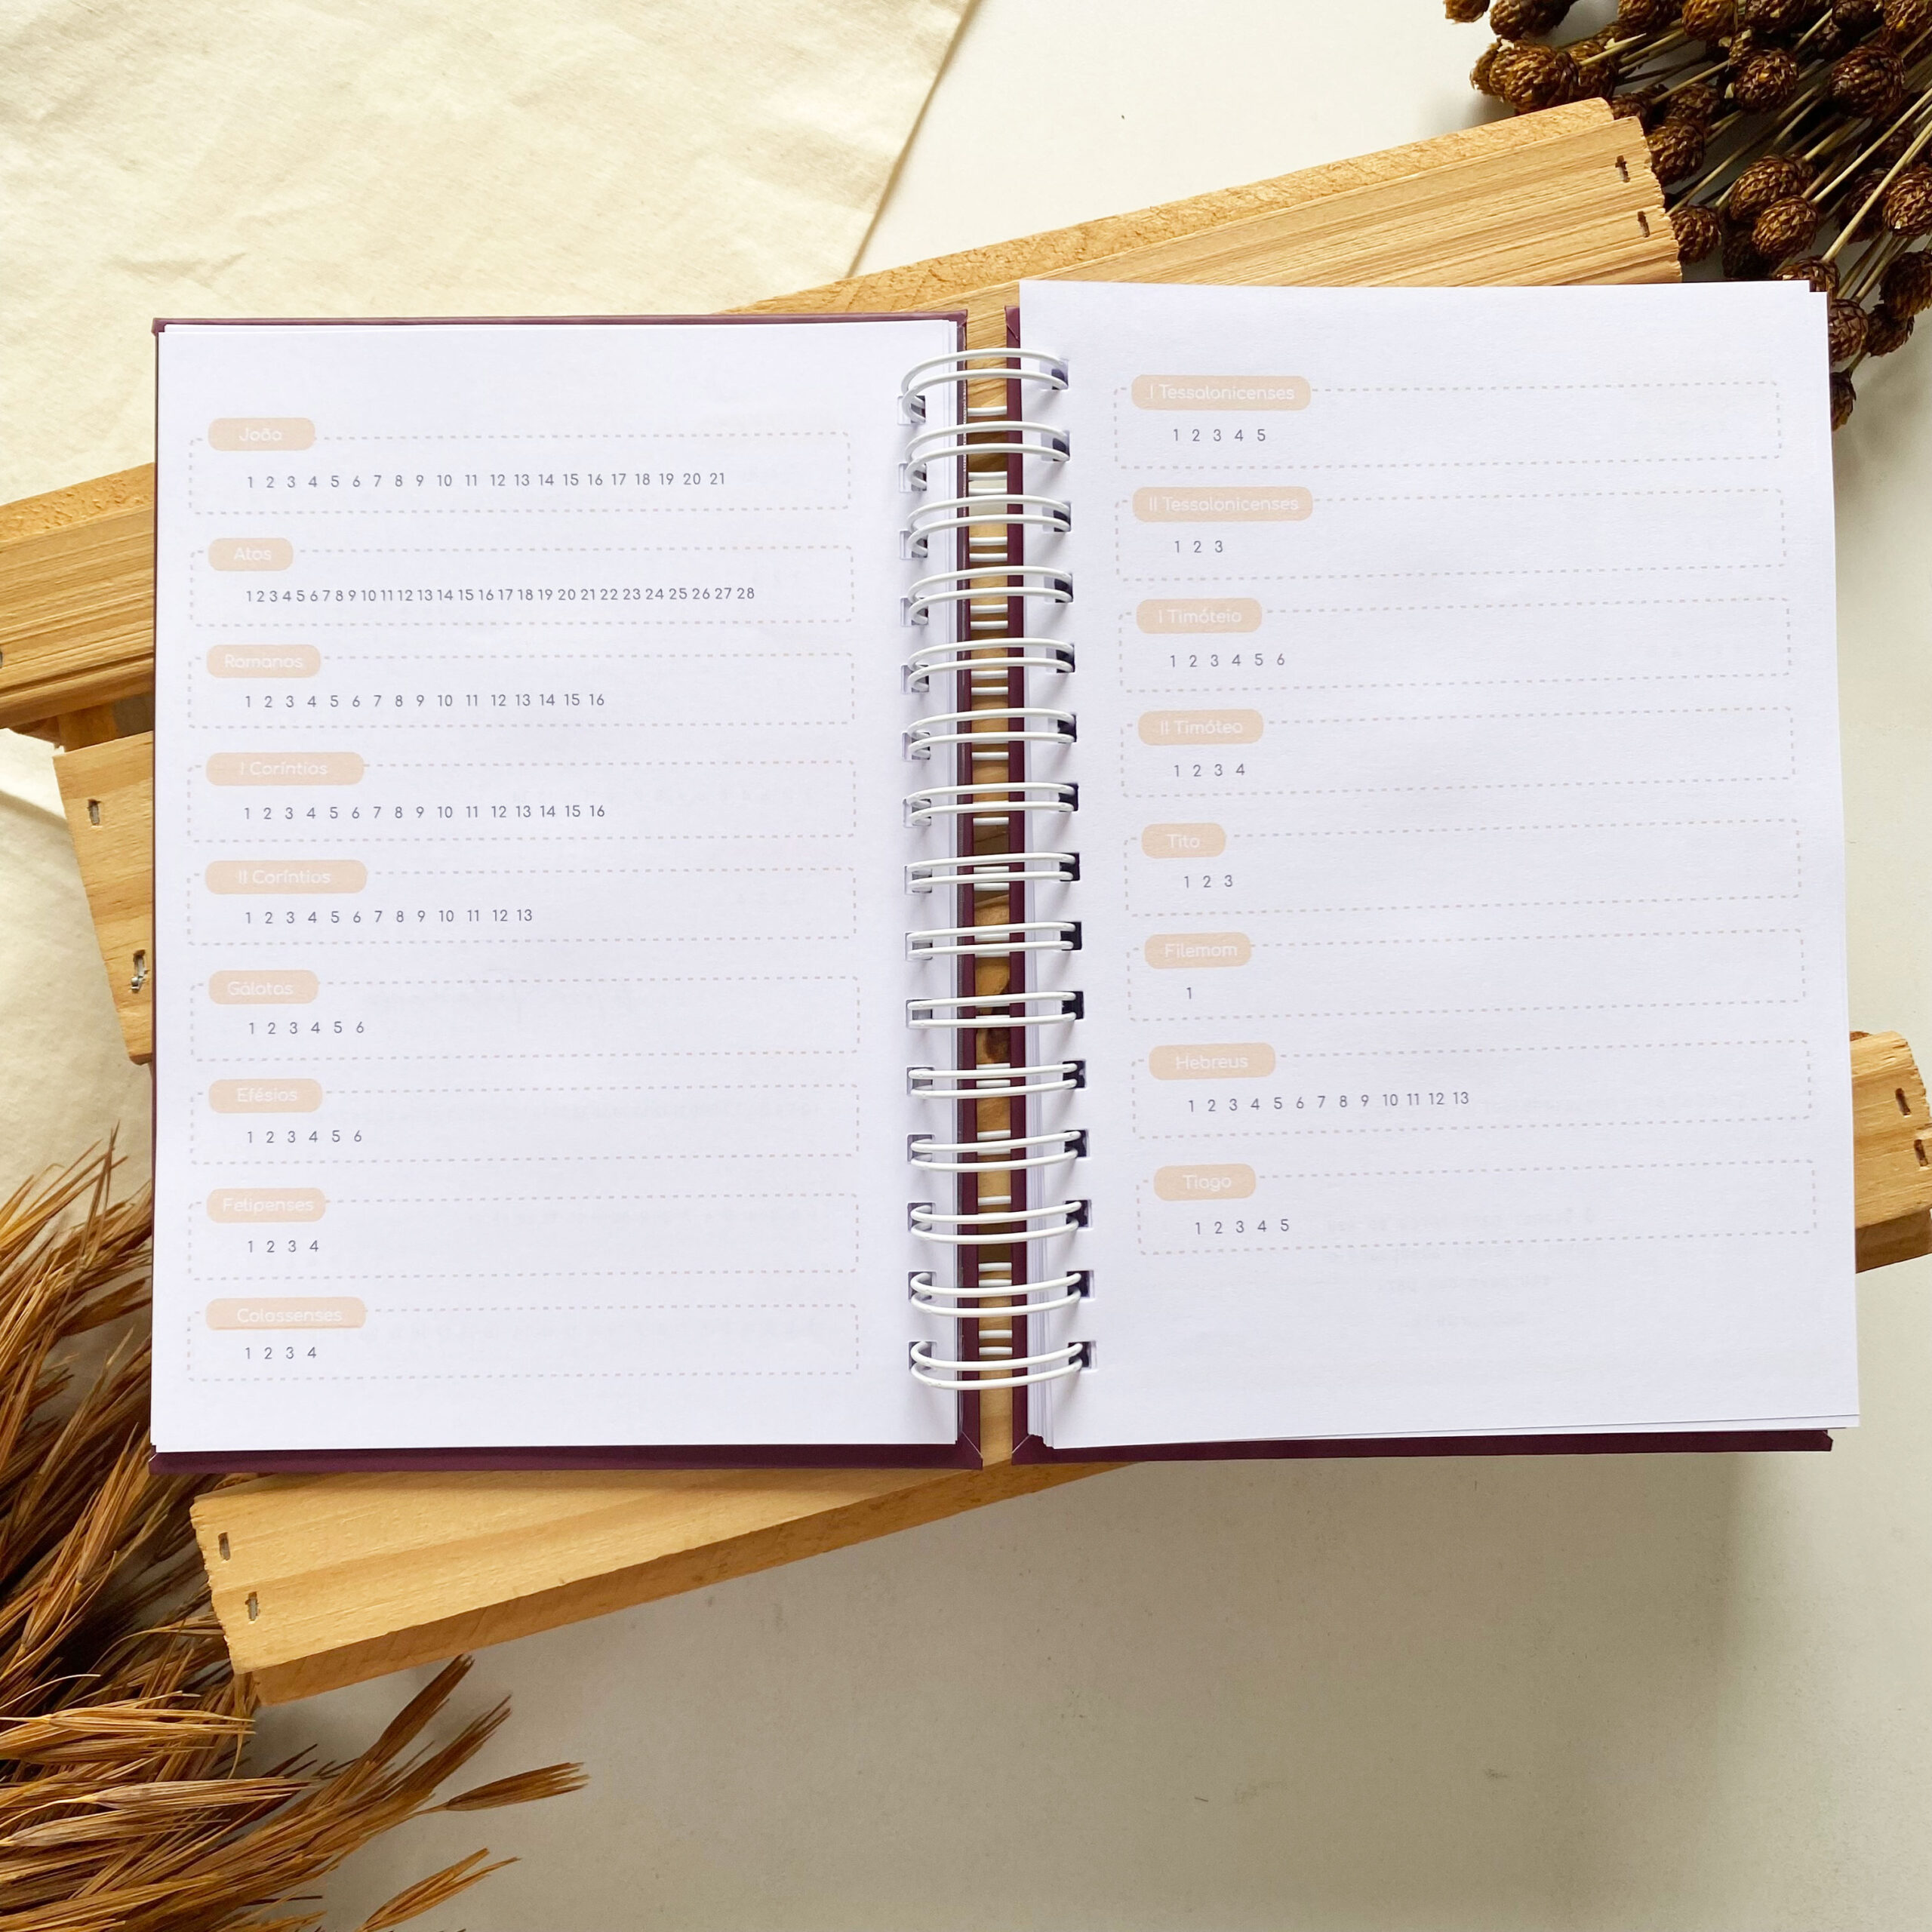 João
1 2 3 4 5 6 7 8 9 10 11 12 13 14 15 16 17 18 19 20 21
Atos
1 2 3 4 5 6 7 8 9 10 11 12 13 14 15 16 17 18 19 20 21 22 23 24 25 26 27 28
Romanos
1 2 3 4 5 6 7 8 9 10 11 12 13 14 15 16
I Coríntios
1 2 3 4 5 6 7 8 9 10 11 12 13 14 15 16
II Coríntios
1 2 3 4 5 6 7 8 9 10 11 12 13
Gálatas
1 2 3 4 5 6
Efésios
1 2 3 4 5 6
Felipenses
1 2 3 4
Colossenses
1 2 3 4
I Tessalonicenses
1 2 3 4 5
II Tessalonicenses
1 2 3
I Timóteio
1 2 3 4 5 6
II Timóteo
1 2 3 4
Tito
1 2 3
Filemom
1
Hebreus
1 2 3 4 5 6 7 8 9 10 11 12 13
Tiago
1 2 3 4 5